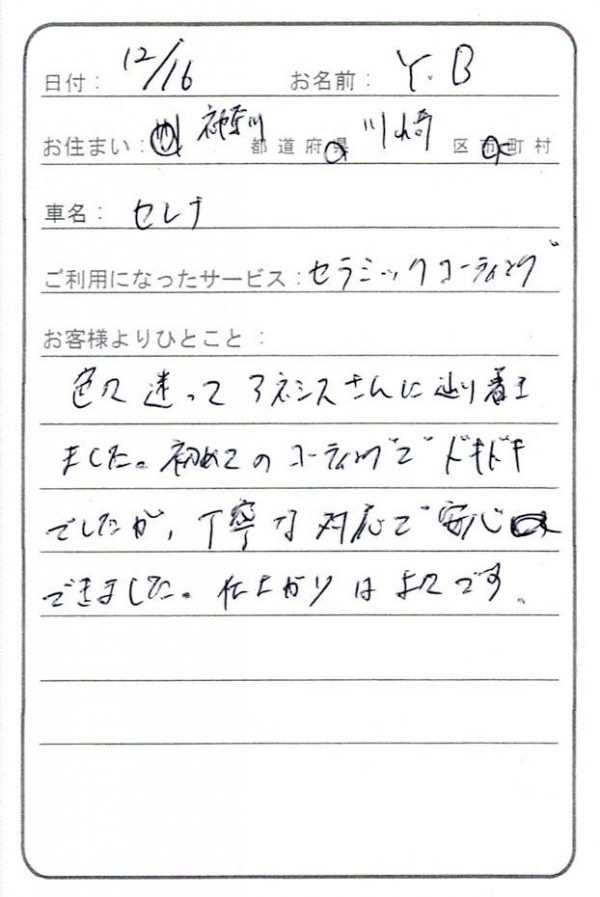 日付： 12/16 お名前： Y.B
お住まい： 神奈川 都道府県 川崎 区市町村
車名： セレナ
ご利用になったサービス： セラミックコーティング
お客様よりひとこと：
色々迷ってアネシスさんに辿り着き
ました。初めてのコーティングでドキドキ
でしたが、丁寧な対応で安心
できました。仕上がりは です。